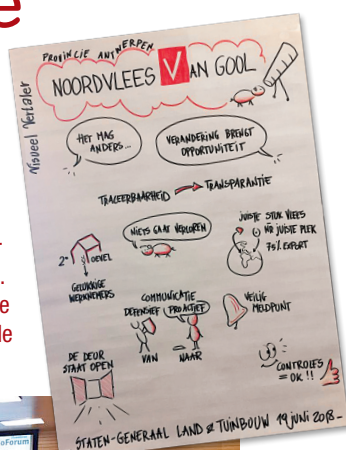 e
PROVINCIE ANTWERPEN
NOORDVLEES VAN GOOL
Visueel Vertaler
HET MAG
ANDERS...
VERANDERING BRENGT
OPPORTUNITEIT
TRACEERBAARHEID → TRANSPARANTIE
NIETS GAAT VERLOREN
JUISTE STUK VLEES
NR JUISTE PLEK
75% EXPORT
2e GEVEL
GELUKKIGE
WERKNEMERS
COMMUNICATIE
DEFENSIEF PROACTIEF
VAN NAAR
VEILIG
MELDPUNT
DE DEUR
STAAT OPEN
CONTROLES
= OK !!
STATEN-GENERAAL LAND & TUINBOUW 19 JUNI 2018 -
e
le
oForum